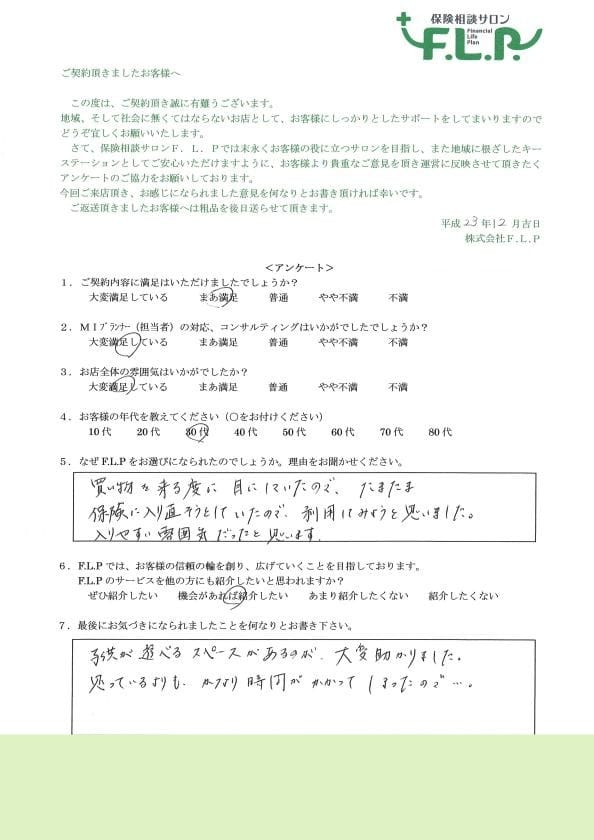 保険相談サロン
F.L.P.
Financial
Life
Plan
ご契約頂きましたお客様へ
この度は、ご契約頂き誠に有難うございます。
地域、そして社会に無くてはならないお店として、お客様にしっかりとしたサポートをしてまいりますので
どうぞ宜しくお願いいたします。
さて、保険相談サロンＦ．Ｌ．Ｐでは末永くお客様の役に立つサロンを目指し、また地域に根ざしたキー
ステーションとしてご安心いただけますように、お客様より貴重なご意見を頂き運営に反映させて頂きたく
アンケートのご協力をお願いしております。
今回ご来店頂き、お感じになられました意見を何なりとお書き頂ければ幸いです。
ご返送頂きましたお客様へは粗品を後日送らせて頂きます。
平成 23 年 12 月吉日
株式会社Ｆ.Ｌ.Ｐ
＜アンケート＞
１．ご契約内容に満足はいただけましたでしょうか？
大変満足している まあ満足 普通 やや不満 不満
２．ＭＩﾌﾟﾗﾝﾅｰ（担当者）の対応、コンサルティングはいかがでしたでしょうか？
大変満足している まあ満足 普通 やや不満 不満
３．お店全体の雰囲気はいかがでしたか？
大変満足している まあ満足 普通 やや不満 不満
４．お客様の年代を教えてください（○をお付けください）
10代 20代 30代 40代 50代 60代 70代 80代
５．なぜF.L.Pをお選びになられたのでしょうか。理由をお聞かせください。
買い物を来る度に 目にしていたので、たまたま
保険に入り直そうとしていたので、利用してみようと思いました。
入りやすい雰囲気だったと思います。
６．F.L.Pでは、お客様の信頼の輪を創り、広げていくことを目指しております。
F.L.Pのサービスを他の方にも紹介したいと思われますか？
ぜひ紹介したい 機会があれば紹介したい あまり紹介したくない 紹介したくない
７．最後にお気づきになられましたことを何なりとお書き下さい。
子供が遊べるスペースがあるのが、大変助かりました。
思っているよりも、かなり時間がかかってしまったので…。